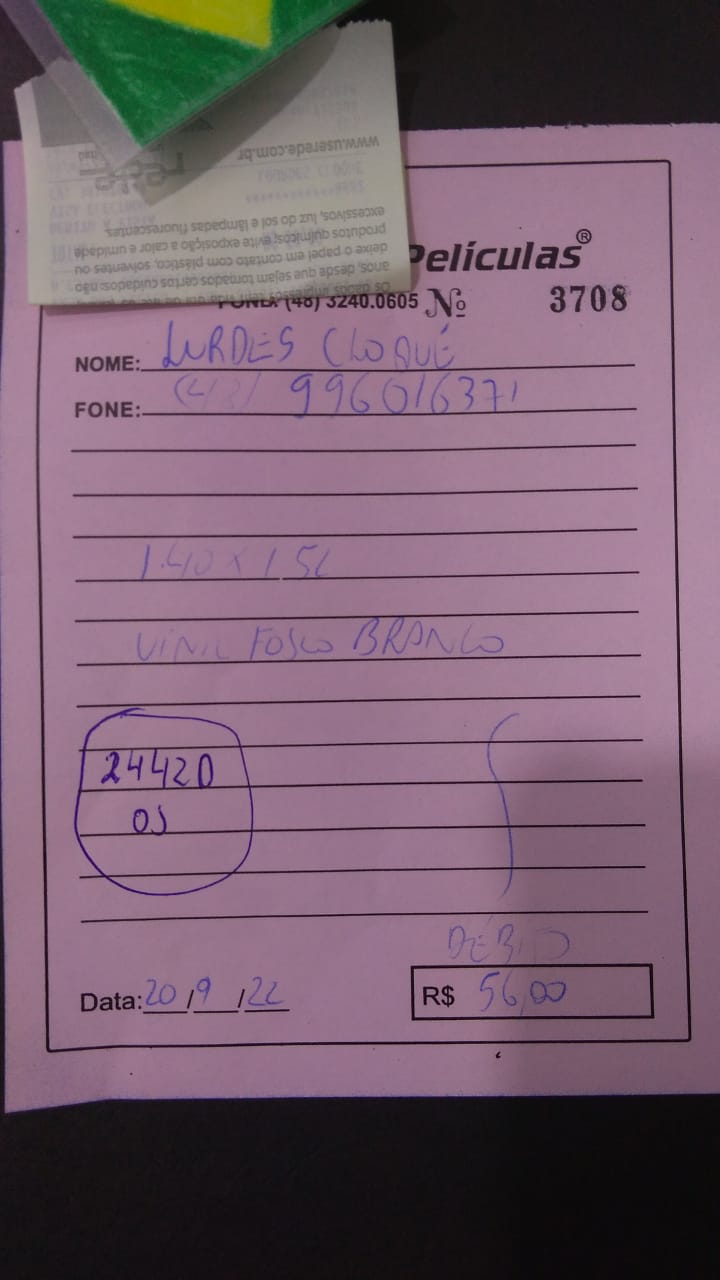 www.userede.com.br
Os dados impressos
anos, desde que sejam tomados certos cuidados: não
deixe o papel em contato com plástico, solventes ou
produtos químicos; evite exposição a calor e umidade
excessivos, luz do sol e lâmpadas fluorescentes.
Películas®
(48) 3240.0605 Nº 3708
NOME: LURDES CLOQUÉ
FONE: (48) 996016371
VINIL FOSCO BRANCO
24420
OS
DÉBITO
Data: 20/9/22
R$ 56,00